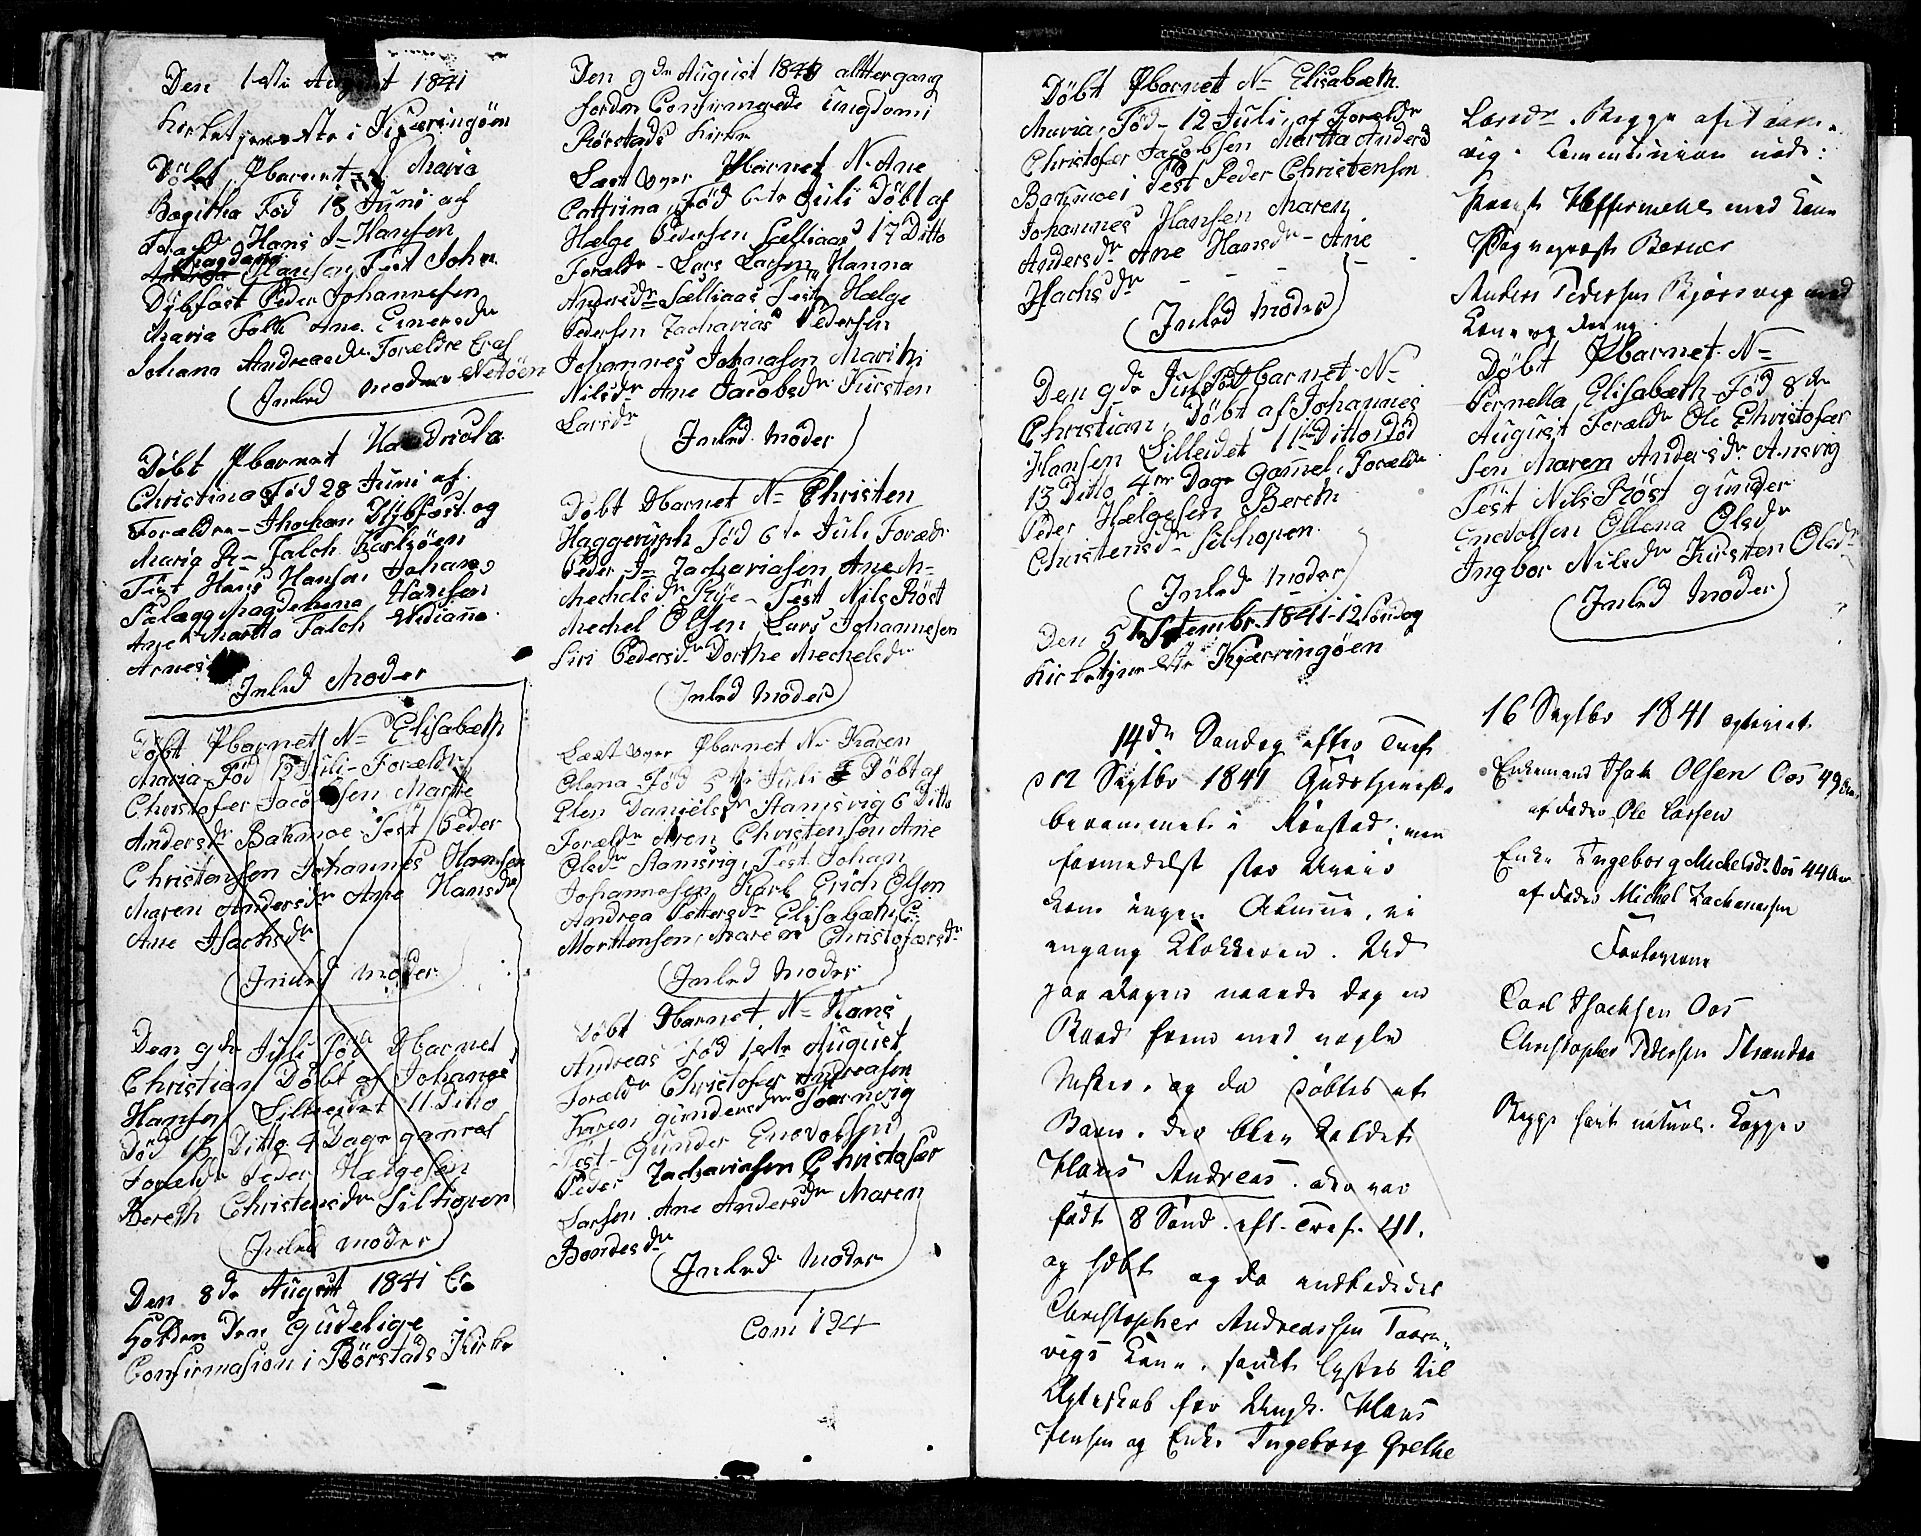 Den 1ste August 1841
Kirketjeneste i Kjæringöen
Döbt Pbarnet N Maria
Bagitha Föd 18 Juni af
Foræld Hans J= Hansen
Magdana
Hansen Test John
Dybfäst Peder Johannesen
Maria Falk Ane Einersdr
Johana Andreasdr Forældre Eraf
Inled Moder
Döbt Pbarnet Hendricka
Christina Föd 28 Juni af
Forældre - Jhochan Dybfæst og
Marig R= Falch Karlsöen
Test Hans Hansen Johanes
Sälagg Magdelena Hansen
Ane Martha Falch Widiane
Arnes
Inled Moder
Döbt Pbarnet N= Elisabeth
Maria Föd 12 Juli - Forældr
Christofer Jacobsen Martha
Andersdr Bakmoe Test Peder
Christensen Johannes Hansen
Maren Andersdr Ane Hansdr
Ane Isachsdr
Inled Moder
Den 9de Juli Föd Dbarnet
Christian Döbt af Johanes
Hansen Lilleidet 11 Ditto
Död 13 Ditto 4 Dage gamel
Forældr Peder Hælgesen
Bereth Christensdr Siltiopen
Inled moder
Den 8de August 1841 Er
Holden Den Gudelige
Confirmasion i Rörstads Kirke
Den 9de August 1841 alttergang
forden Confirmerede Ungdom i
Rörstads Kirke
Læst over Pbarnet N. Ane
Cattrina Föd 6te Juli Döbt af
Hælge Pedersen Sælliaas 17 Ditto
Forældr - Lars Larsen Hanna
Andersdr Sælliaas Test Hælge
Pedersen Zacharias Pedersen
Johannes Johnasen Marith
Nilsdr Ane Jacobsdr Kirsten
Larsdr
Inled Moder
Döbt Dbarnet N= Christen
Haggerupph Föd 6te Juli Forældr
Peder J= Zachariasen Ane M=
Mechelsdr Rye - Test Nils Röst
Mechel Olsen Lars Johannesen
Siri Pedersdr Dorthe Mechelsdr
Inled Moder
Læst over Pbarnet N= Karen
Olena Föd 5te Juli Döbt af
Elen Danielsdr Stamsvig 6 Ditto
Forældr Aren Christensen Ane
Olsdr Stamsvig, Test Johan
Johannesen Karl Erich Olsen
Andrea Pettersdr Elisabeth
Morttensen, Maren Christofersdr
Inled Moder
Döbt Dbarnet N= Hans
Andreas Föd 1ste August
Forældr Christofer Andreasen
Karen Gundersdr Taarnvig
Test - Gunder Enevoldsen
Peder Zachariasen Christofer
Larsen Ane Andersdr Maren
Bondesdr
Inled Moder
Com 124
Döbt Pbarnet N= Elisabæth
Maria Föd - 12 Juli, af Forældr
Christofer Jacobsen Martta Anders
Bakmoei Test Peder Christensen
Johannes Hansen Maren
Andersdr Ane Hansdr - Ane
Isachsdr
Inled Moder
Den 9de Juli Föd Dbarnet N=
Christian Döbt af Johannes
Hansen Lilleidet 11te Ditto Död
13 Ditto 4re Dage Gamel. Forældr
Peder Hælgesen Bereth
Christensdr Siltiopen
Inled Moder
Den 5te September 1841 - 12 Söndag
Kirketjeneste Kjærringöen
14de Søndag efter Tref.
d 12 Septbr 1841 Gudstjeneste
berammet i Rørstad; men
formedelst stor Uveir
kom ingen Almue, ei
engang Klokkeren. Ud
paa Dagen naaede dog en
Baad frem med nogle
Msker. og da døbtes et
Barn. der blev kaldet
Hans Andreas. der var
født 8 Sønd. eft. Tref. 41.
og hdbt og da indledtes
Christopher Andreassen Taarn-
vigs Kone. samt lystes til
Ægteskab for Ungk. Hans
Jensen og Enke Ingeborg Grethe
Larsdr. Begge af Taarn-
vig. Communion nød:
med Kone
Anders Pedersen Bjørsvig med
Kone og Dreng
Döbt Pbarnet N=
Pernella Elisabæth Föd 8de
August Forældr Ole Christofer
sen Maren Andersdr Ansvig
Test Nils Röst Gunder
Enevolsen Ollena Olsdr
Ingbor Nilsdr Kirsten Olsdr
Inled Moder
16 Septbr 1841 copuleret
Enkemand Isak Olsen Oos 49 Aar
af Fader Ole Larsen
Enke Ingeborg Michelsdr Oos 44 Aar
af Fader Michel Zachariasen
Forloverne
Carl Isachsen Oos
Christopher Pedersen Strandaa
Begge havt naturl. Kopper